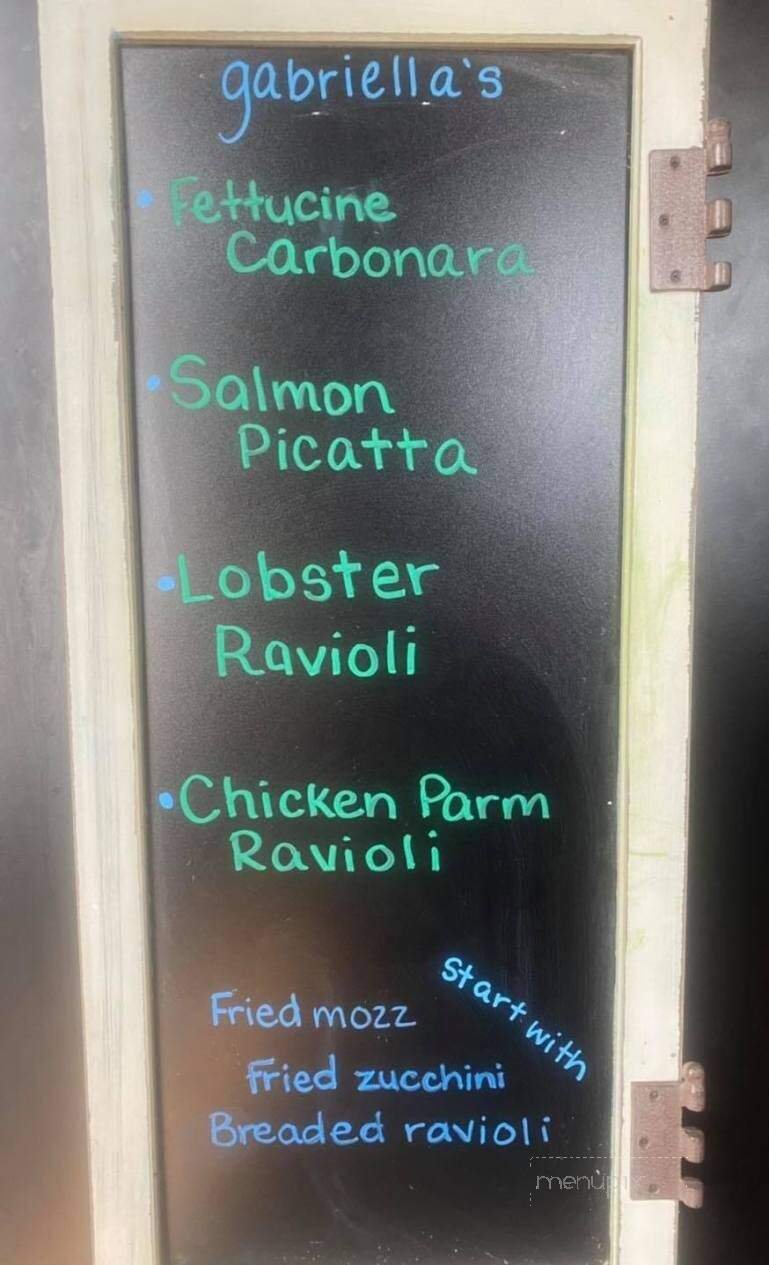 gabriella's
• Fettucine
Carbonara
• Salmon
Picatta
• Lobster
Ravioli
• Chicken Parm
Ravioli
Start with
Fried mozz
Fried zucchini
Breaded ravioli